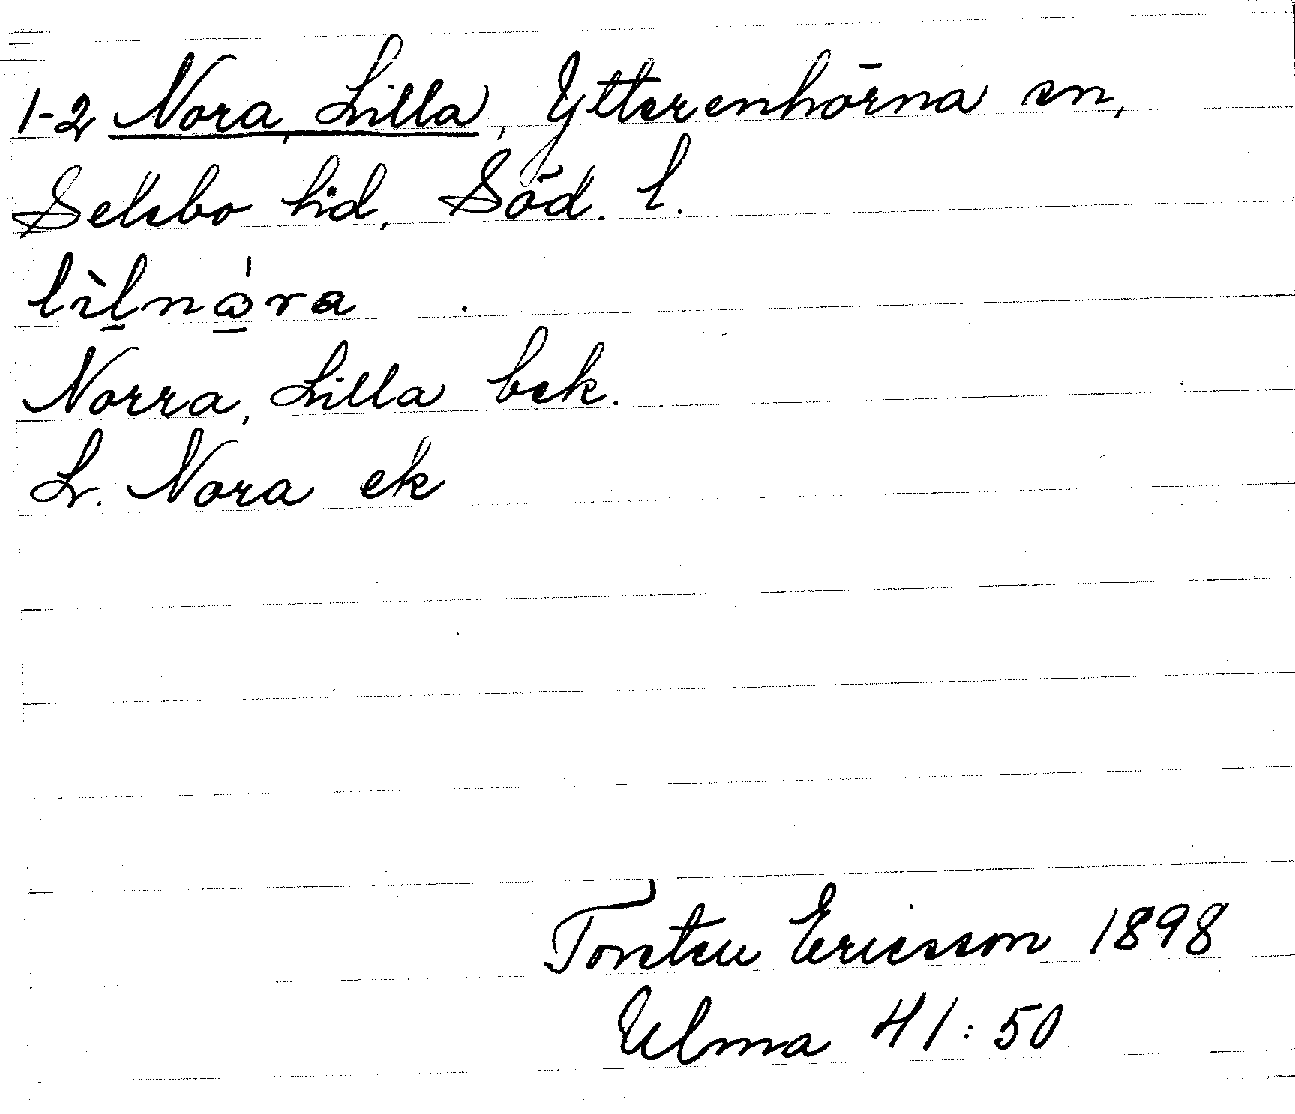 1-2 Nora, Lilla, Ytterenhörna sn,
Selebo hd, Söd. l.
lìlnὼra
Norra, Lilla bek.
L. Nora ek
Torsten Ericsson 1898
Ulma 41:50